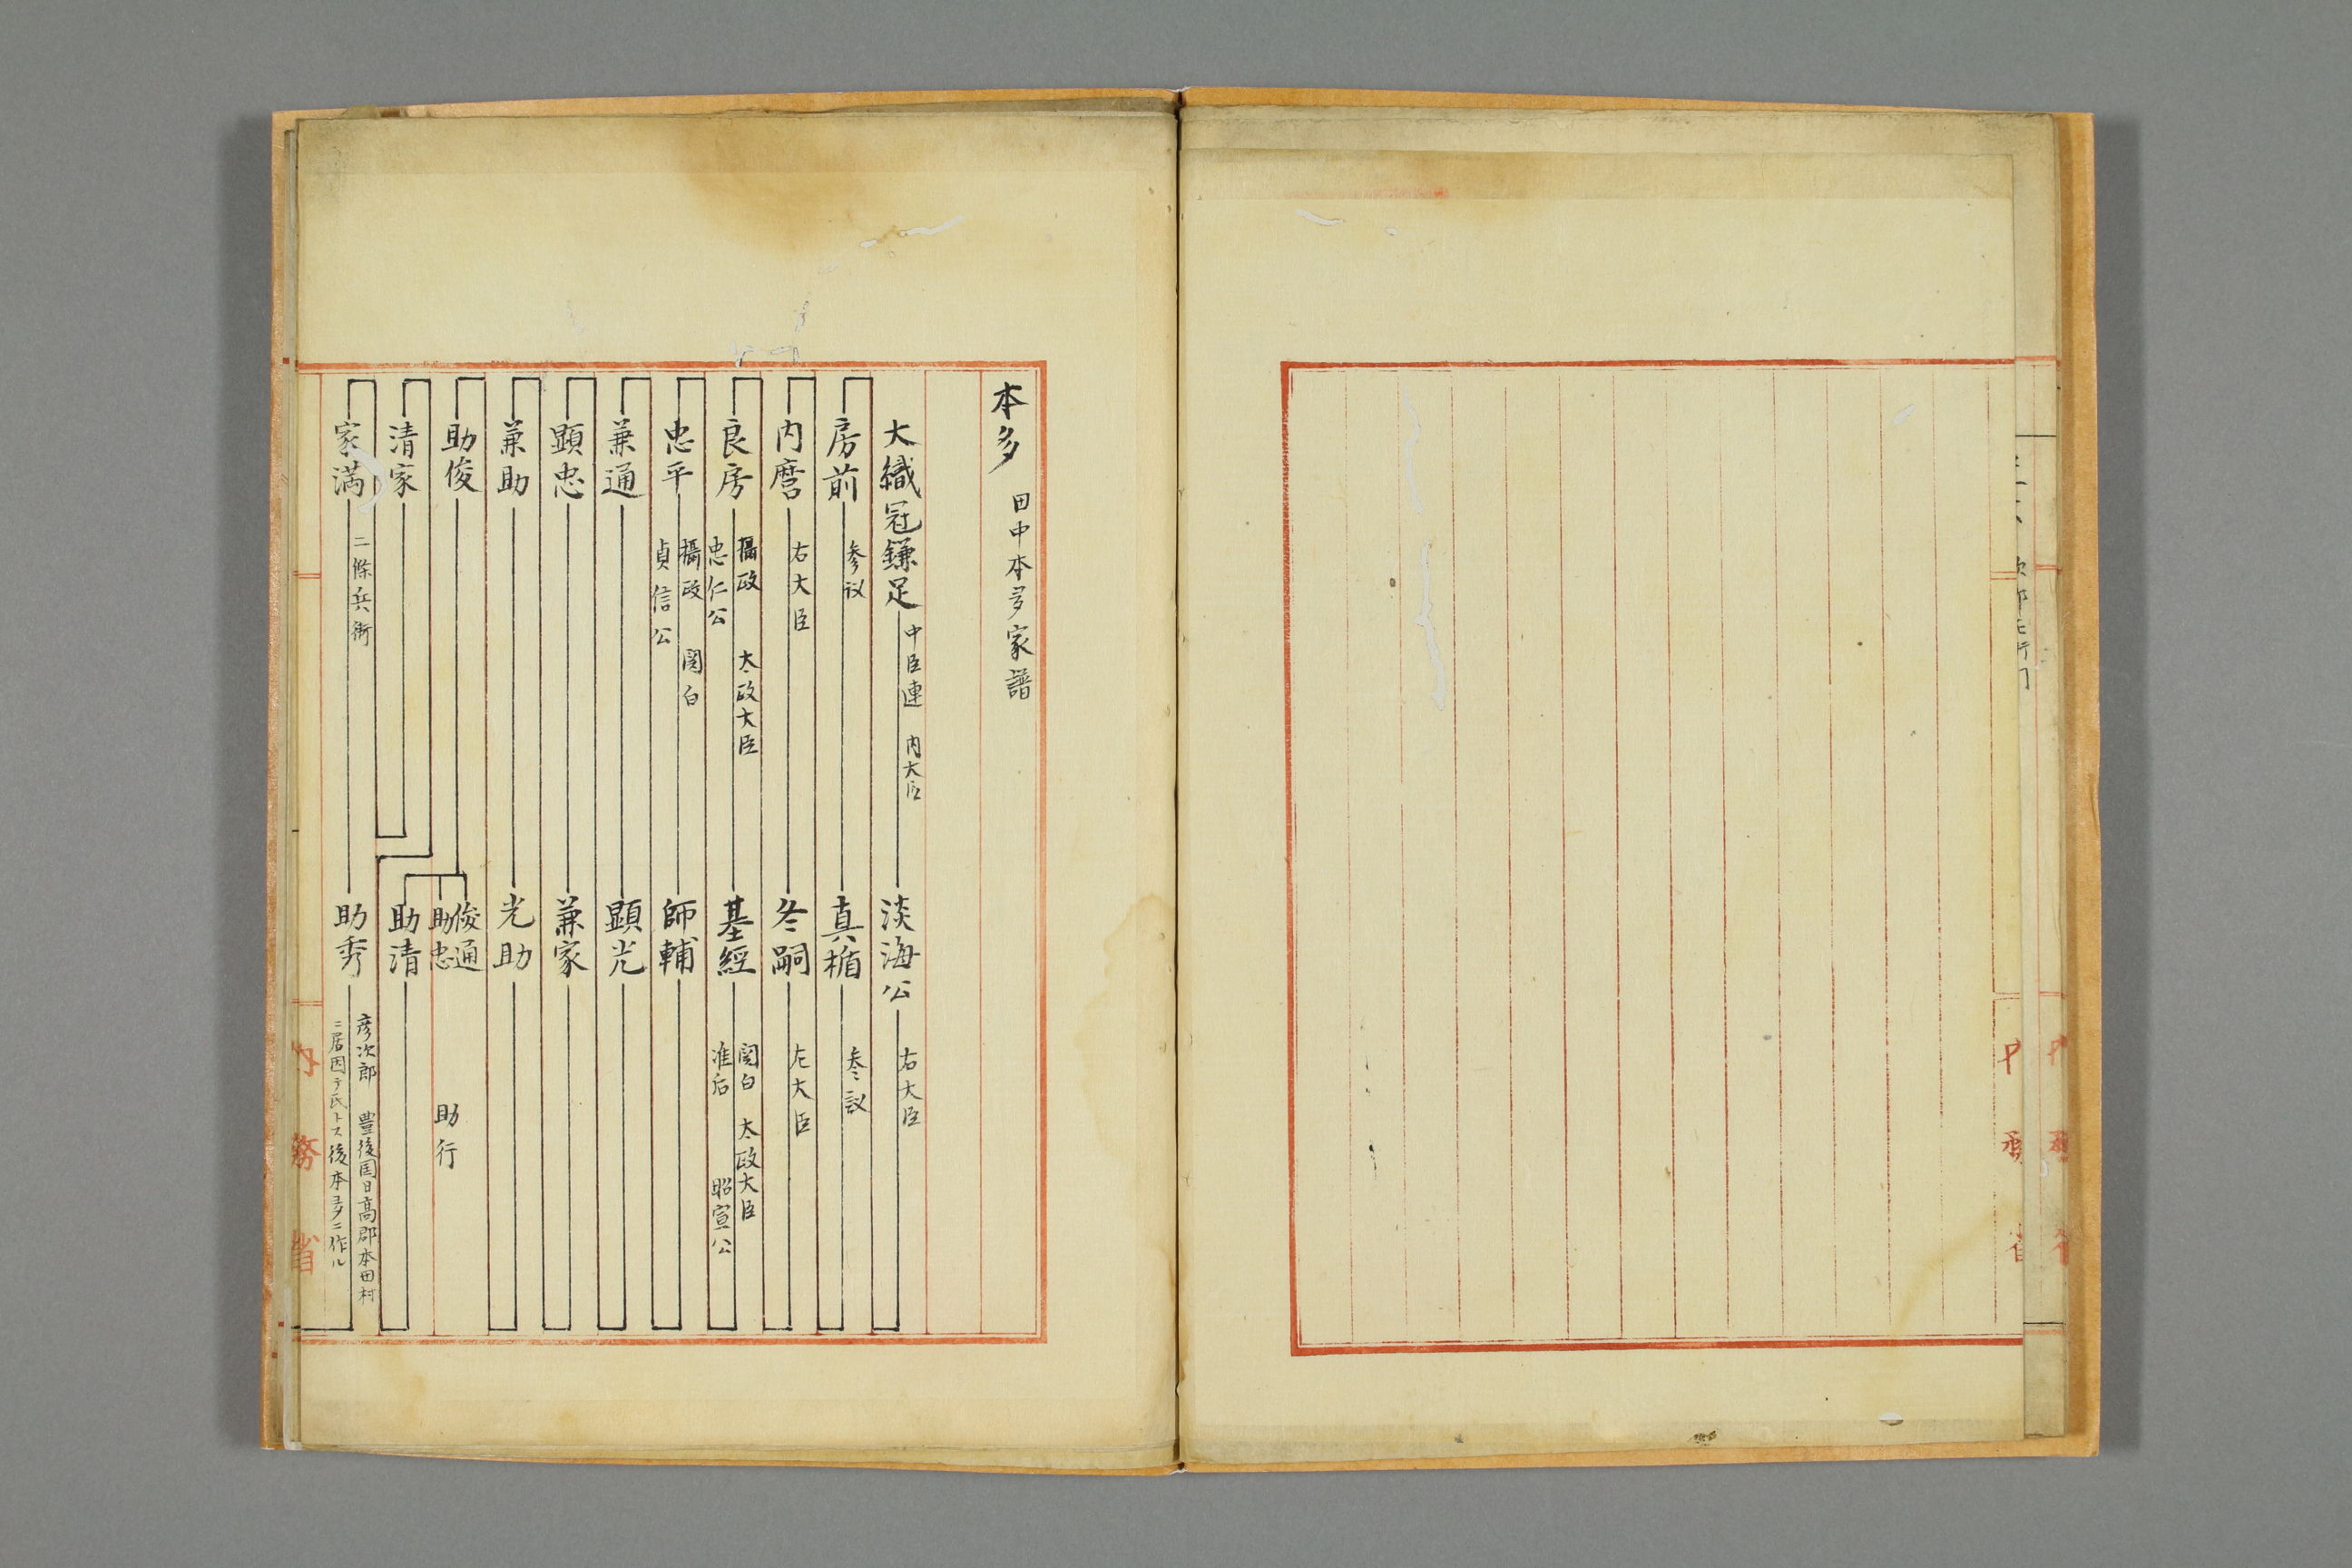 本多 田中本多家譜
大織冠鎌足 中臣連 内大臣
淡海公 右大臣
房前 参议
真楯 参議
内麿 右大臣
冬嗣 左大臣
良房 攝政 太政大臣
忠仁公
基經 関白 太政大臣
准后 昭宣公
忠平 攝政 関白
貞信公
師輔
兼通
顕光
顕忠
兼家
兼助
光助
助俊
俊通
助忠 助行
助清
清家
家満 二條兵衛
助秀 彦次郎 豊後国日高郡本田村
ニ居因テ氏トス後本多ニ作ル
内務省